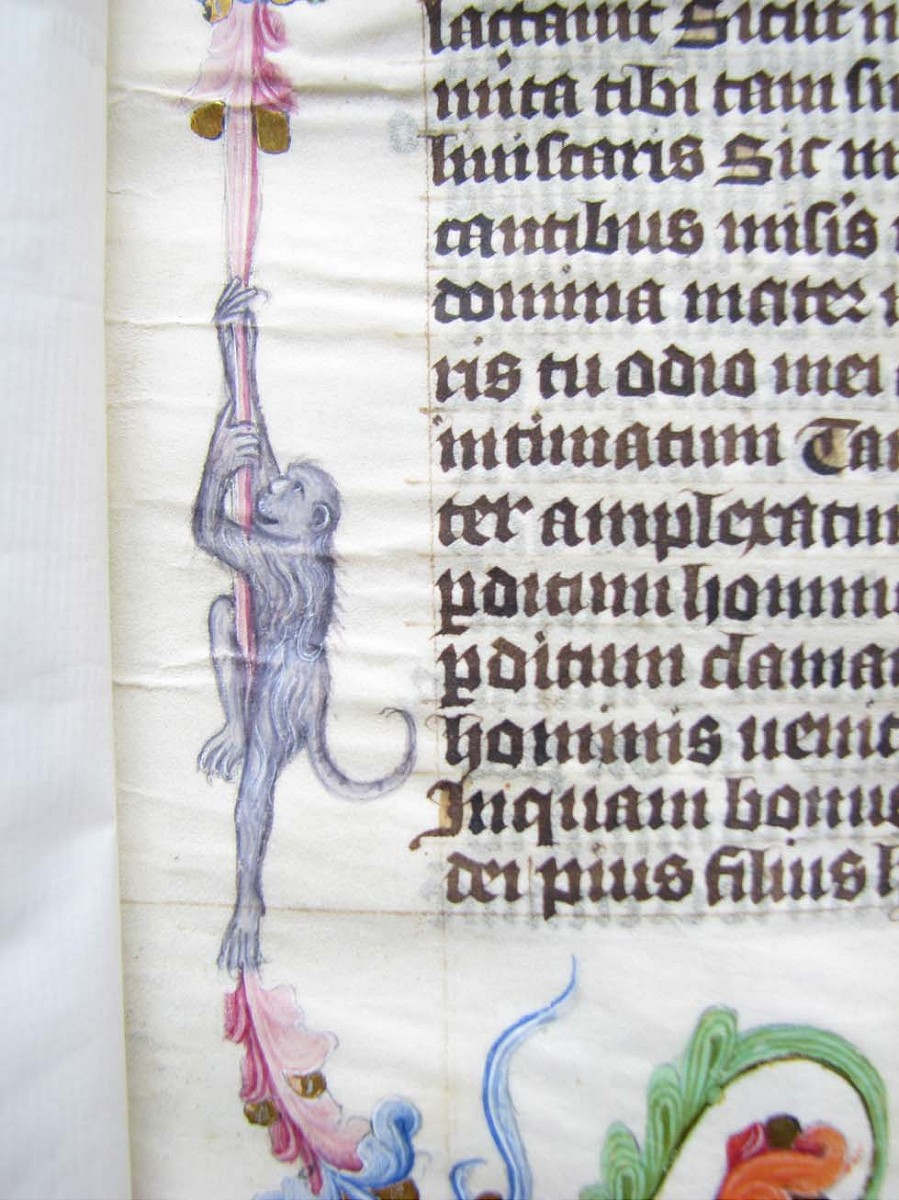 lactauit Sicut
tibi tam
liuiscaris Sic
cantibus
domina mater
ris tu odio mei
intimatum Tan
ter amplexatur
pditum homin
pditum clama
hominis uenit
Inquam bonus
dei pius filius